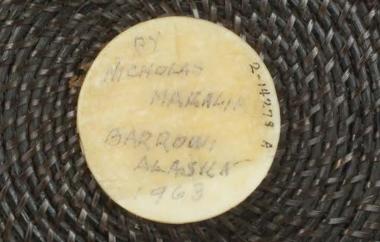 BY
NICHOLAS
MARALIK
BARROW,
ALASKA
1963
2-14278 A